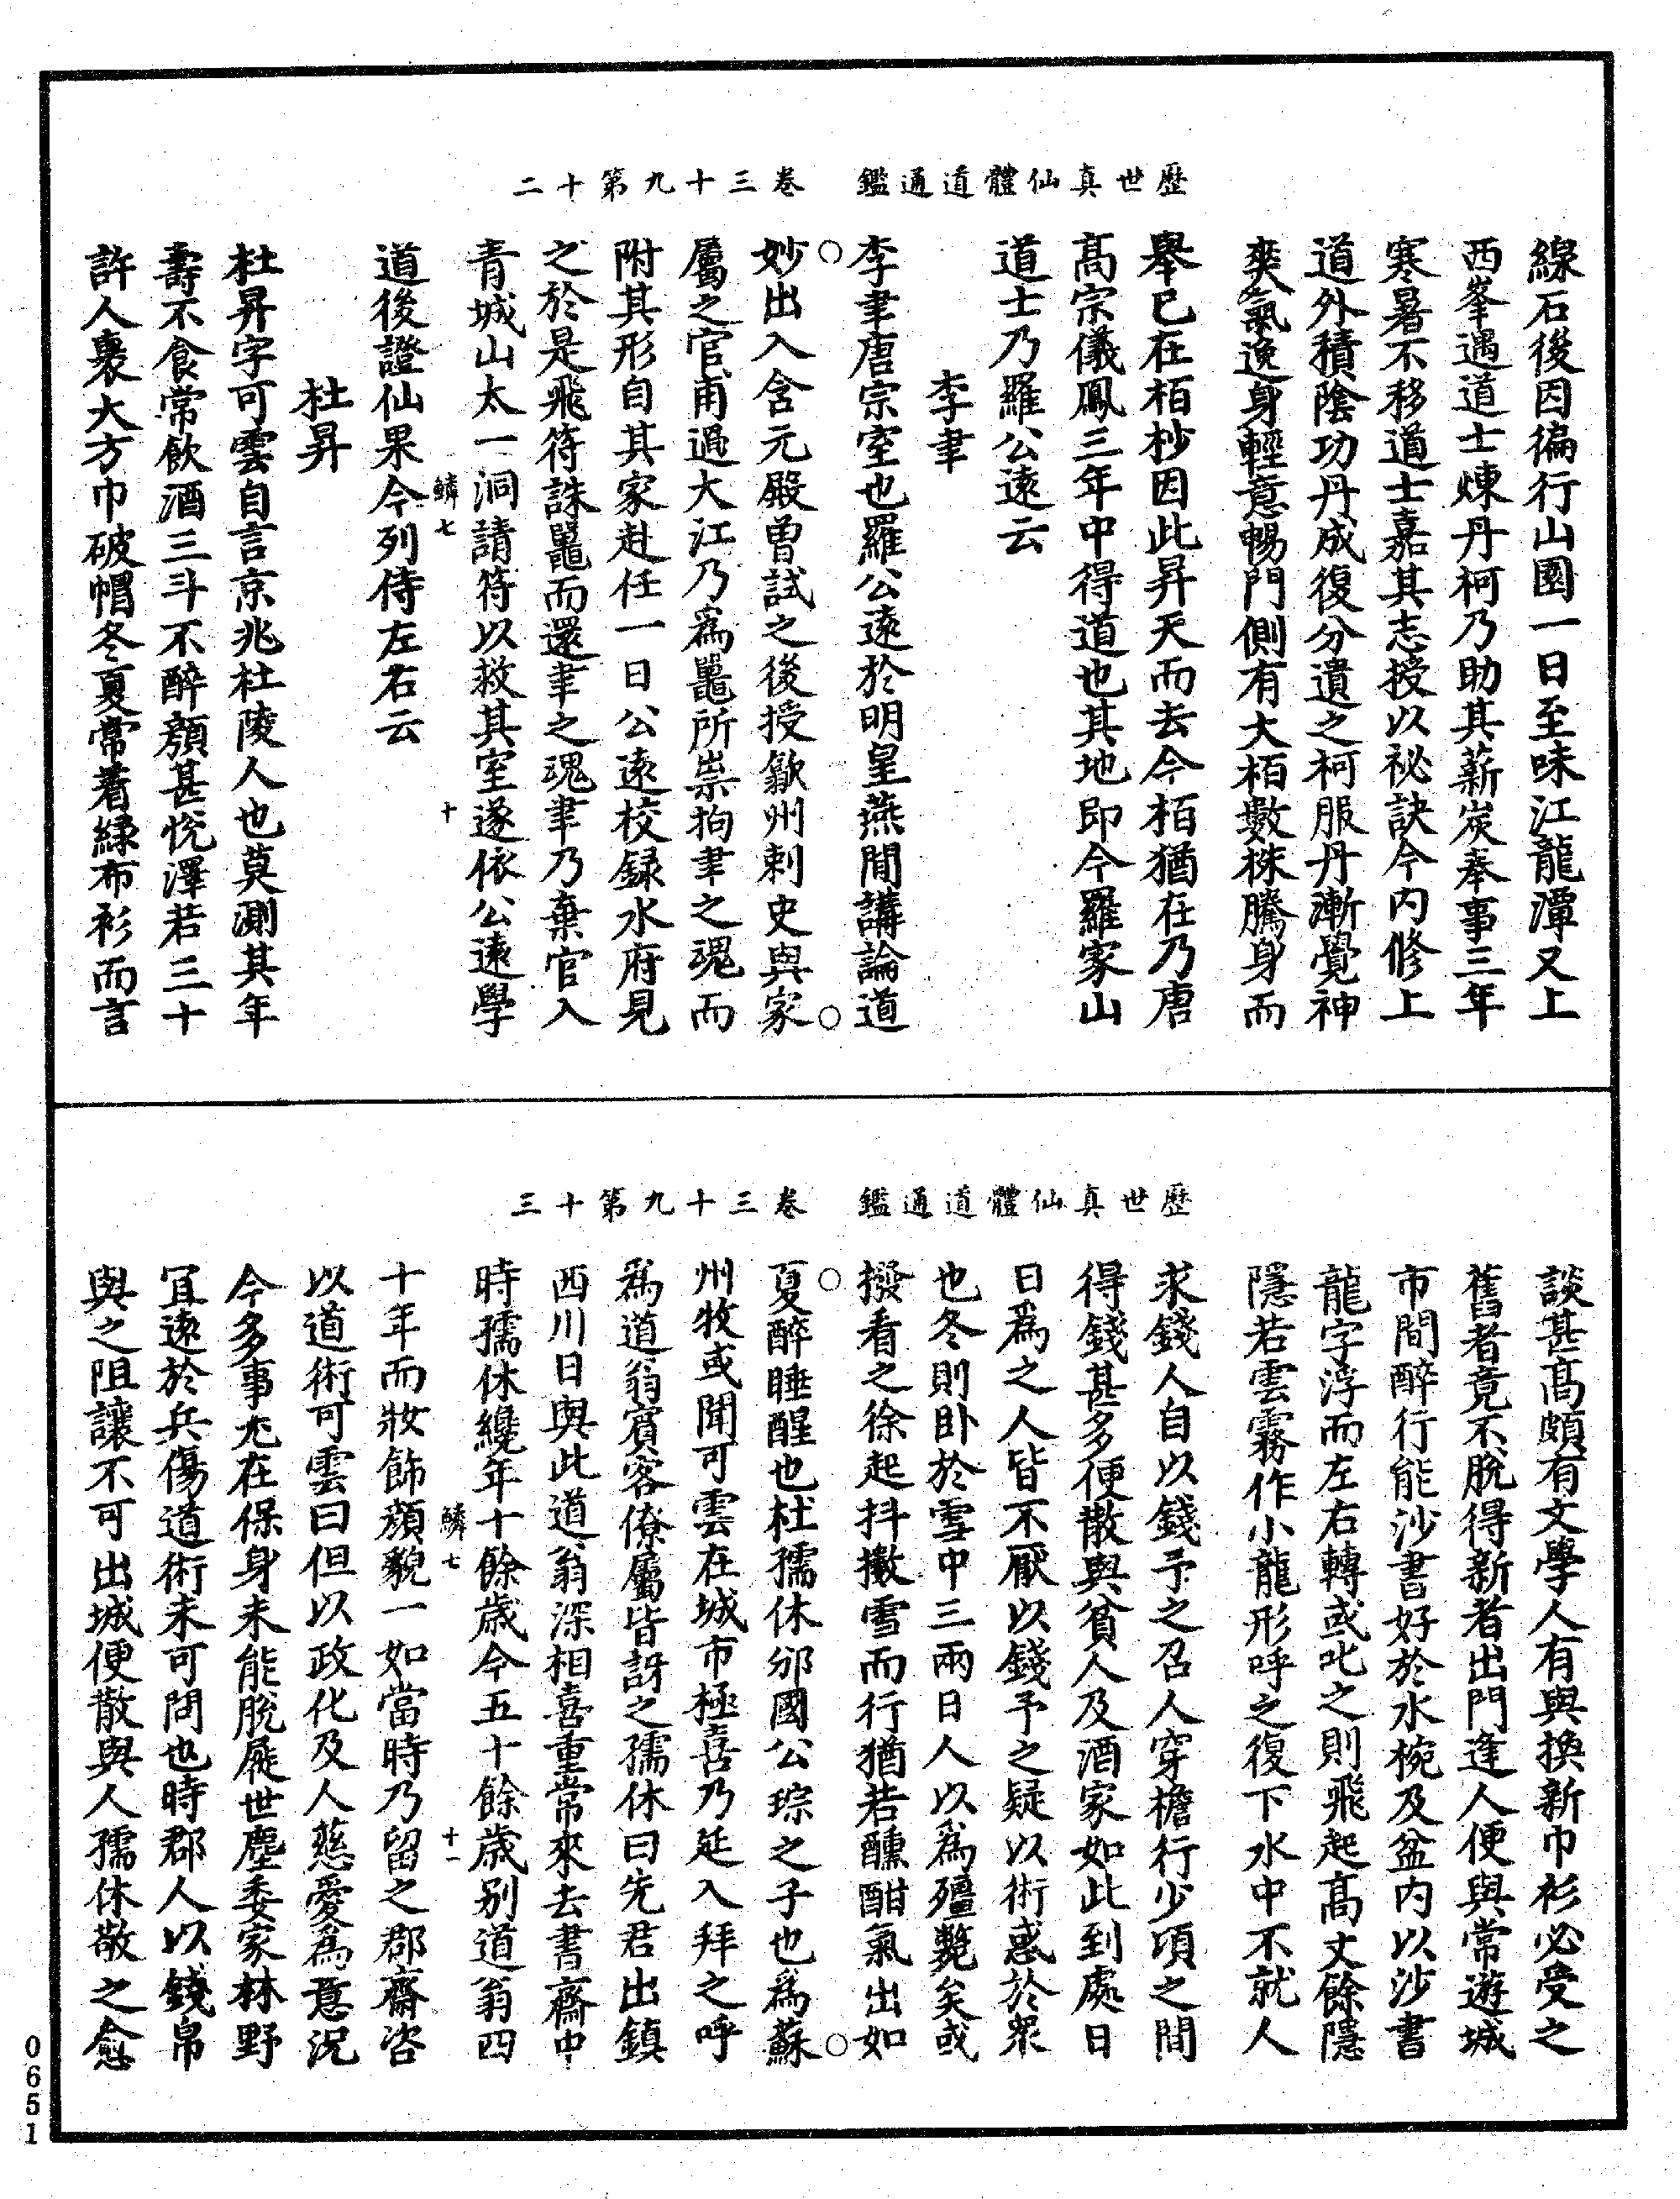 歷世真仙體道通鑑　卷三十九第十二
線石後因徧行山園一日至味江龍潭又上
西峯遇道士煉丹柯乃助其薪炭奉事三年
寒暑不移道士嘉其志授以祕訣令内修上
道外積陰功丹成復分遺之柯服丹漸覺神
爽氣逸身輕意暢門側有大栢數株騰身而
舉已在栢杪因此昇天而去今栢猶在乃唐
髙宗儀鳳三年中得道也其地即今羅家山
道士乃羅公遠云
李聿
李聿唐宗室也羅公遠於明皇燕間講論道
妙出入含元殿曾試之後授歙州刺史與家
屬之官甫過大江乃爲鼍所祟拘聿之魂而
附其形自其家赴任一日公遠校録水府見
之於是飛符誅鼍而還聿之魂聿乃棄官入
青城山太一洞請符以救其室遂依公遠學
鱗七　十
道後證仙果今列侍左右云
杜昇
杜昇字可雲自言京兆杜陵人也莫測其年
壽不食常飲酒三斗不醉顏甚悅澤若三十
許人裹大方巾破帽冬夏常着緑布衫而言
歷世真仙體道通鑑　卷三十九第十三
談甚髙頗有文學人有與換新巾衫必受之
舊者竟不脫得新者出門逢人便與常遊城
市間醉行能沙書好於水椀及盆内以沙書
龍字浮而左右轉或叱之則飛起髙丈餘隱
隱若雲霧作小龍形呼之復下水中不就人
求錢人自以錢予之召人穿檐行少頃之間
得錢甚多便散與貧人及酒家如此到處日
日爲之人皆不厭以錢予之疑以術惑於衆
也冬則卧於雪中三兩日人以爲殭斃矣或
撥看之徐起抖擻雪而行猶若醺酣氣出如
夏醉睡醒也杜孺休邠國公琮之子也爲蘇
州牧或聞可雲在城市極喜乃延入拜之呼
爲道翁賓客僚屬皆訝之孺休曰先君出鎮
西川日與此道翁深相喜重常來去書齋中
時孺休纔年十餘歲今五十餘歲别道翁四
鱗七　十一
十年而妝飾顏貌一如當時乃留之郡齋咨
以道術可雲曰但以政化及人慈愛爲意況
今多事尤在保身未能脫屣世塵委家林野
冝遠於兵傷道術未可問也時郡人以錢帛
與之阻讓不可出城便散與人孺休敬之愈
0651